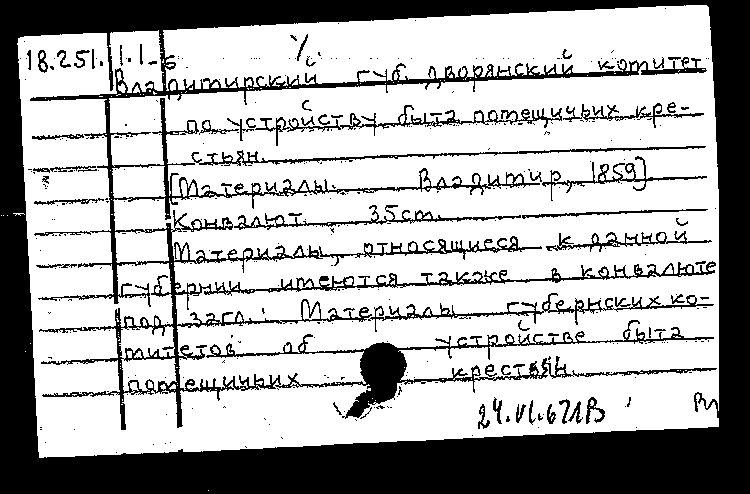 18.251.1.1-6
Владимирский губ. дворянский комитет
по устройству быта помещичьих кре-
стьян.
[Материалы. Владимир, 1859]
Конвалют. 35cm.
Материалы, относящиеся к данной
губернии имеются также в конвалюте
под загл.: Материалы губернских ко-
митетов об устройстве быта
помещичьих крестьян.
24.VI.67